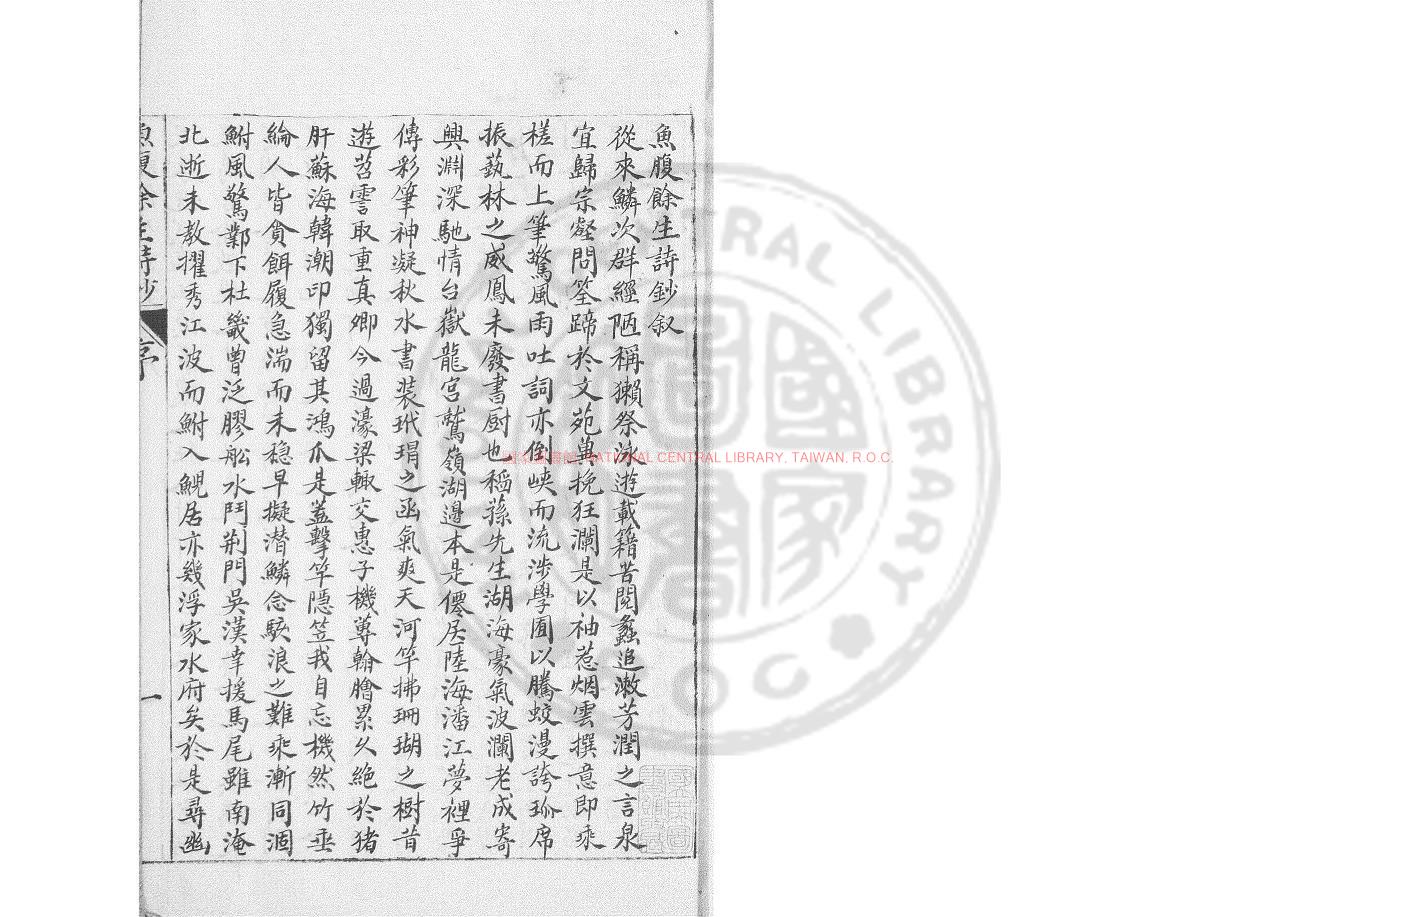 魚腹餘生詩鈔叙
從來鱗次群經陋稱獺祭泳遊載籍苦閱蠡追漱芳潤之言泉
宜歸宗壑問筌蹄於文苑萬挽狂瀾是以袖惹烟雲撰意即乘
槎而上筆驚風雨吐詞亦倒峽而流涉學囿以騰蛟漫誇珎席
振蓺林之威鳳未廢書厨也稻蓀先生湖海豪氣波瀾老成寄
興淵深馳情台嶽龍宮鷲嶺湖邊本是僊居陸海潘江夢裡爭
傳彩筆神凝秋水書裝玳瑁之函氣爽天河竿拂珊瑚之樹昔
遊苕霅取重真卿今過濠梁輙交惠子機蓴翰膾累久絕於猪
肝蘇海韓潮印獨留其鴻爪是盖擊竿隱笠我自忘機然竹垂
綸人皆貪餌履急湍而未穏早擬潜鱗念駭浪之難乘漸同涸
鮒風驚鄴下杜畿曾泛膠舩水鬥荆門吳漢幸援馬尾雖南淹
北逝未教擢秀江波而鮒入鯢居亦幾浮家水府矣於是尋幽
魚腹餘生詩鈔
序
一
國家圖書館 NATIONAL CENTRAL LIBRARY, TAIWAN, R.O.C.